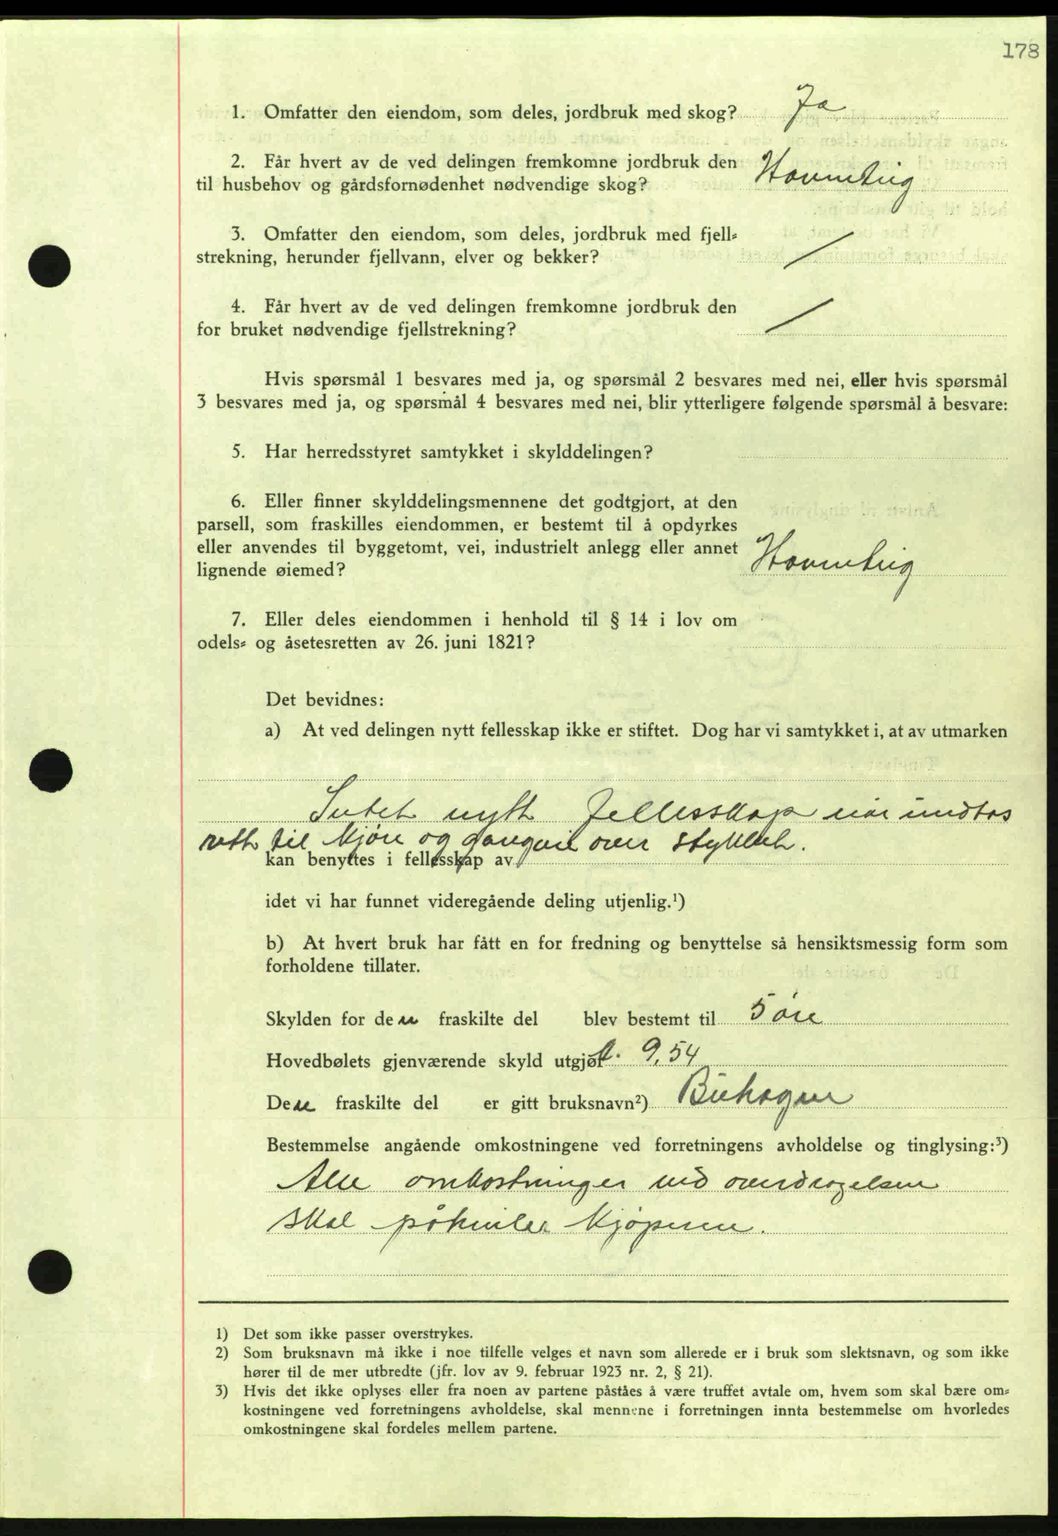 178
1. Omfatter den eiendom, som deles, jordbruk med skog? Ja
2. Får hvert av de ved delingen fremkomne jordbruk den
til husbehov og gårdsfornødenhet nødvendige skog? Havnebrig
3. Omfatter den eiendom, som deles, jordbruk med fjell-
strekning, herunder fjellvann, elver og bekker? /
4. Får hvert av de ved delingen fremkomne jordbruk den
for bruket nødvendige fjellstrekning? /
Hvis spørsmål 1 besvares med ja, og spørsmål 2 besvares med nei, eller hvis spørsmål
3 besvares med ja, og spørsmål 4 besvares med nei, blir ytterligere følgende spørsmål å besvare:
5. Har herredsstyret samtykket i skylddelingen?
6. Eller finner skylddelingsmennene det godtgjort, at den
parsell, som fraskilles eiendommen, er bestemt til å opdyrkes
eller anvendes til byggetomt, vei, industrielt anlegg eller annet
lignende øiemed? Havnebrig
7. Eller deles eiendommen i henhold til § 14 i lov om
odels- og åsetesretten av 26. juni 1821?
Det bevidnes:
a) At ved delingen nytt fellesskap ikke er stiftet. Dog har vi samtykket i, at av utmarken
Intet nytt fellesskap
rett til kjøre og gangvei over stykket.
kan benyttes i fellesskap av
idet vi har funnet videregående deling utjenlig.¹)
b) At hvert bruk har fått en for fredning og benyttelse så hensiktsmessig form som
forholdene tillater.
Skylden for den fraskilte del blev bestemt til 5 øre
Hovedbølets gjenværende skyld utgjør 9,54
Den fraskilte del er gitt bruksnavn²)
Bestemmelse angående omkostningene ved forretningens avholdelse og tinglysing:³)
Alle omkostninger ved overdragelsen
skal påhvile kjøperen.
1) Det som ikke passer overstrykes.
2) Som bruksnavn må ikke i noe tilfelle velges et navn som allerede er i bruk som slektsnavn, og som ikke
hører til de mer utbredte (jfr. lov av 9. februar 1923 nr. 2, § 21).
3) Hvis det ikke oplyses eller fra noen av partene påståes å være truffet avtale om, hvem som skal bære om-
kostningene ved forretningens avholdelse, skal mennene i forretningen innta bestemmelse om hvorledes
omkostningene skal fordeles mellem partene.